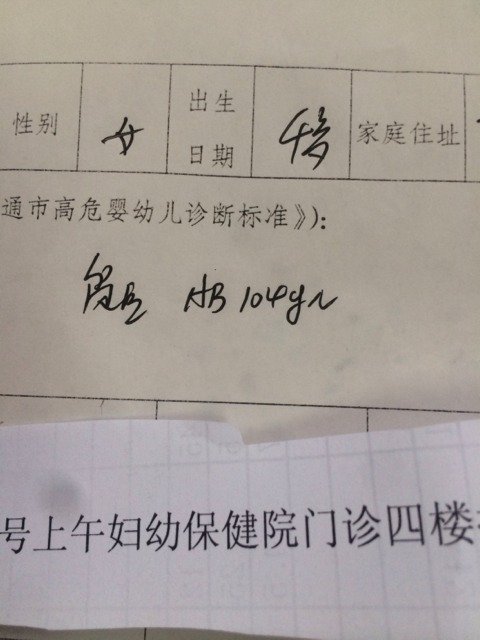 性别 女 出生日期 家庭住址
通市高危婴幼儿诊断标准》):
HB 104g/L
号上午妇幼保健院门诊四楼